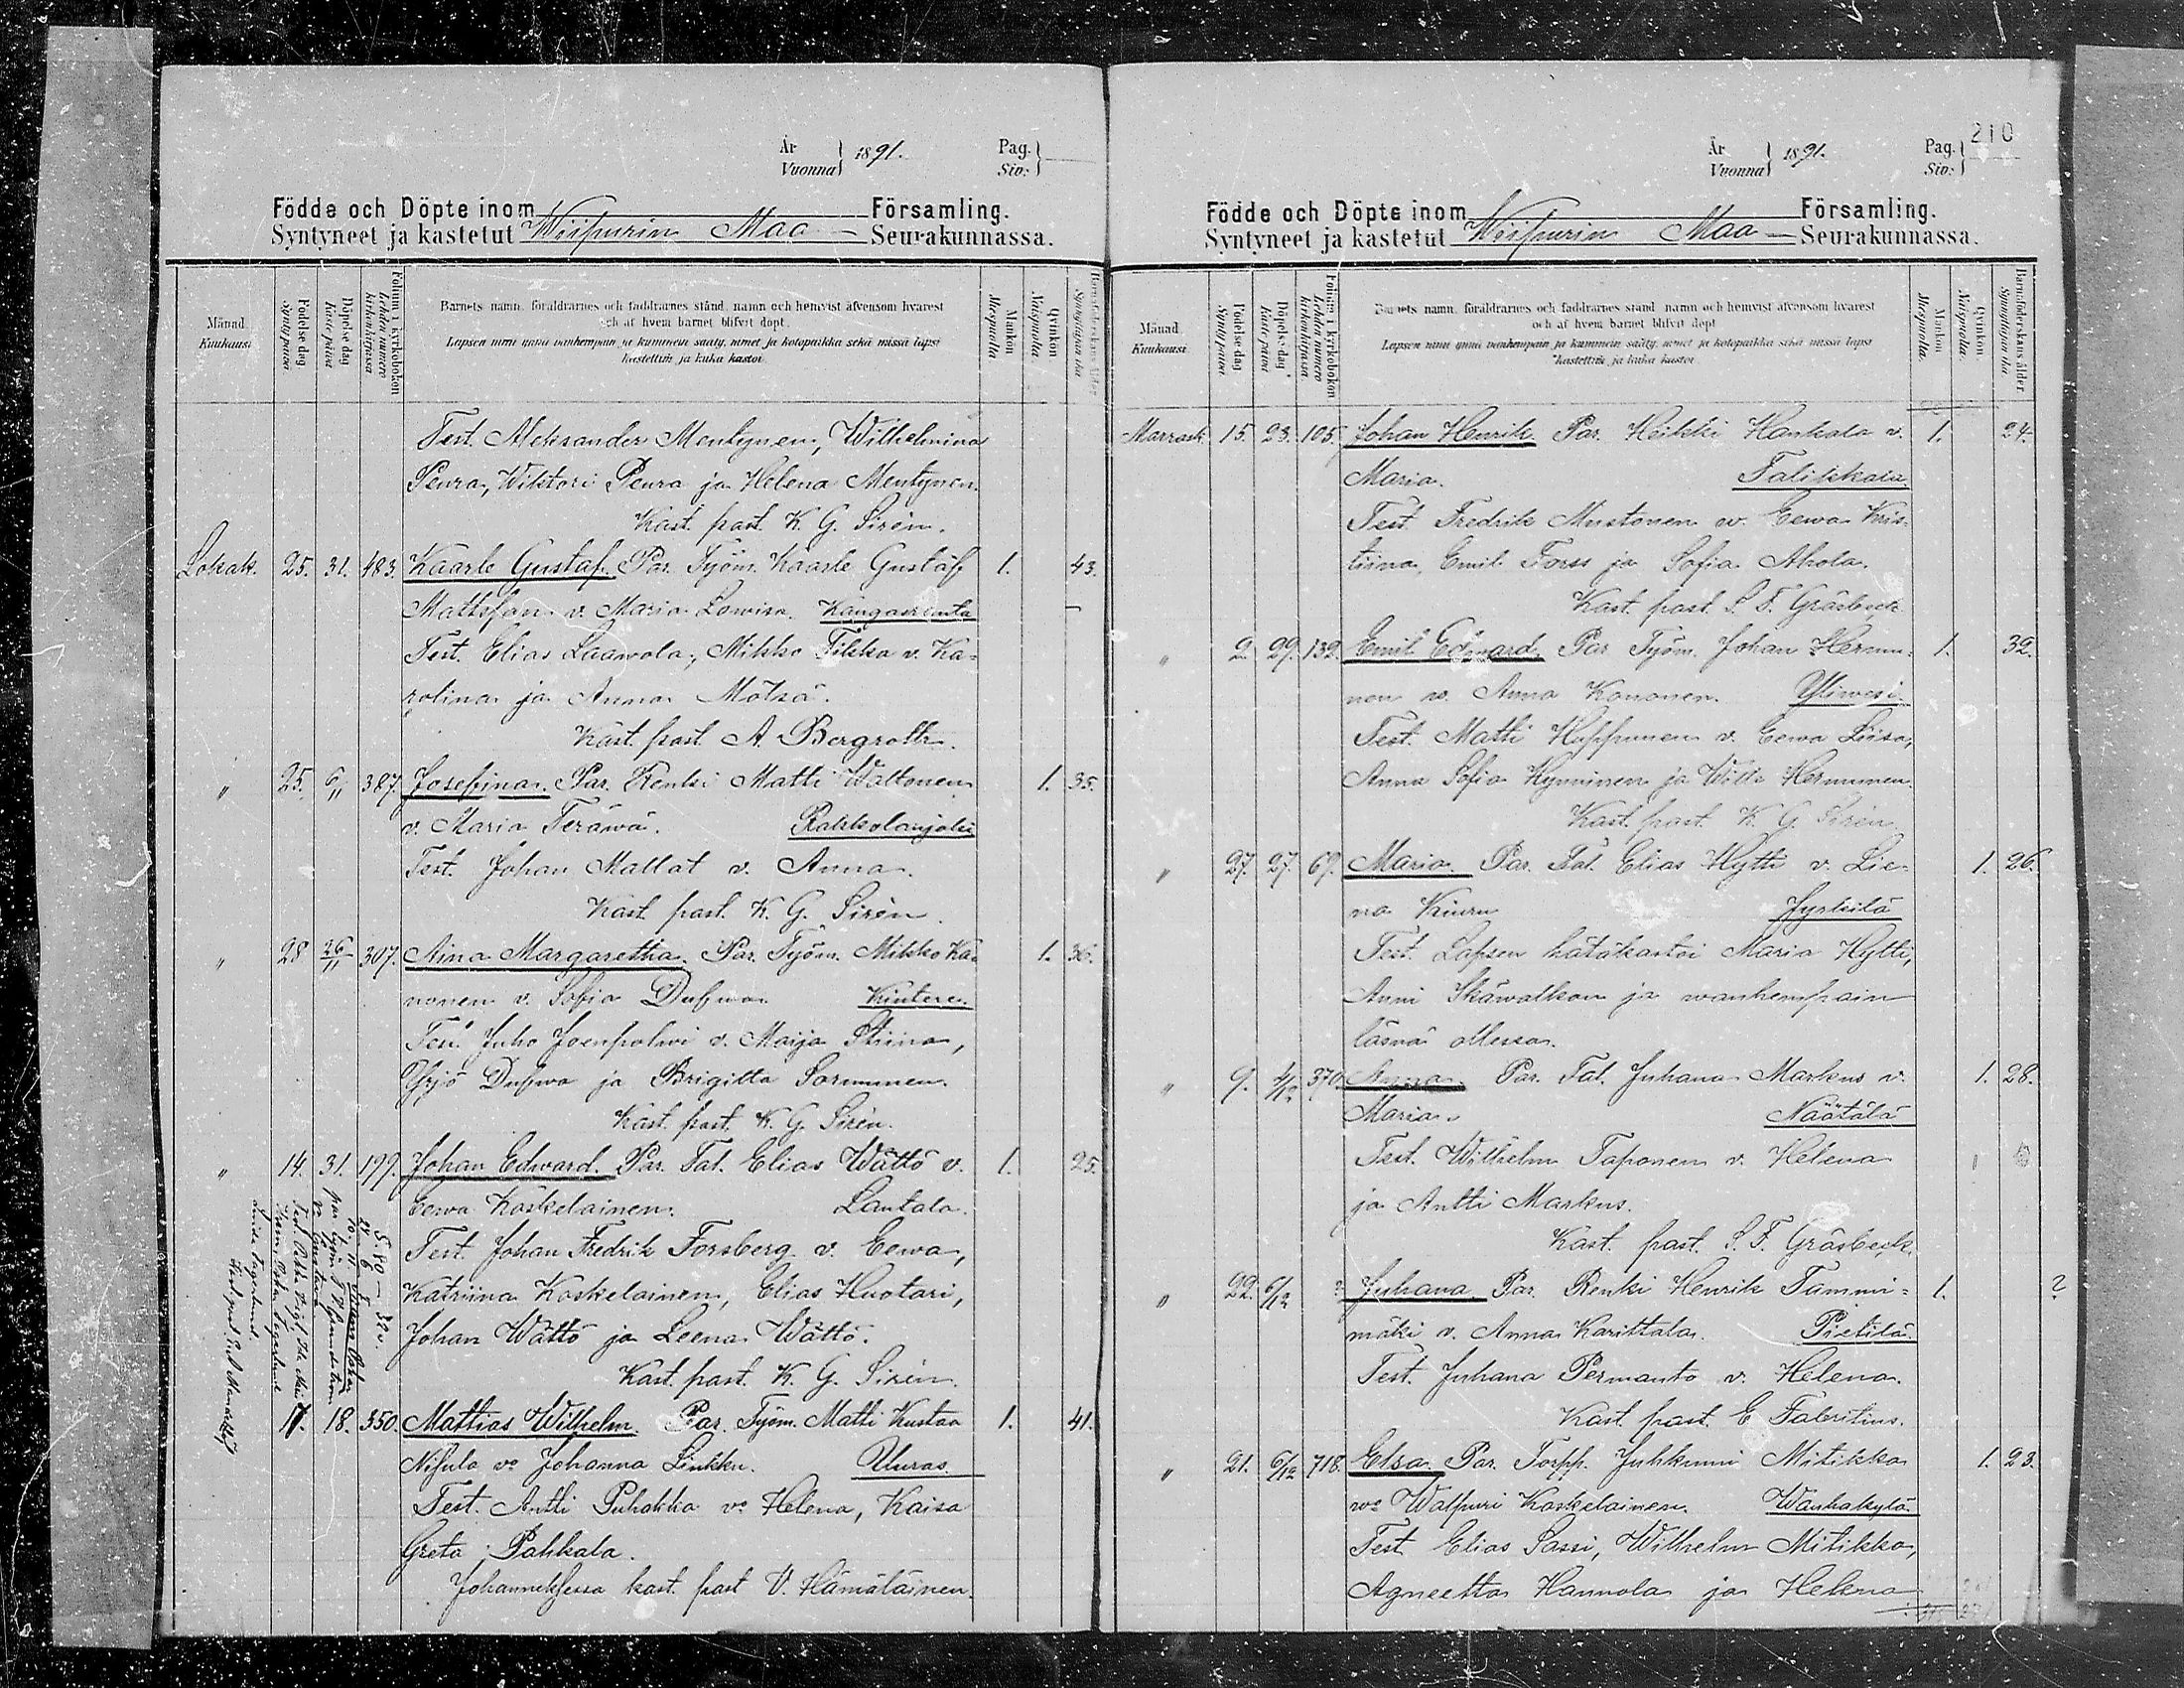 År
Vuonna } 1891.
Pag.
Siv: }
Födde och Döpte inom Församling.
Syntyneet ja kastetut Wiipurin Maa Seurakunnassa.
Månad Kuukausi
Födelse dag Synty päivä
Döpelse dag Kaste päivä
Folium i kyrkoboken Lehden numero kirkonkirjassa
Barnets namn, föräldrarnes och faddrarnes stånd, namn och hemvist äfvensom hvarest
och af hvem barnet blifvit döpt.
Lapsen nimi ynnä vanhempain ja kummein sääty, nimet ja kotopaikka sekä missä lapsi
kastettiin ja kuka kastoi.
Mankön Miespuolia.
Qvinkön Naispuolia.
Barnaföderskans ålder Synnyttäjän ikä
Test. Aleksander Mentynen, Wilhelmina
Peura, Wiktori Peura ja Helena Mentynen.
Kast. past. K. G. Sirén.
Lokak. 25. 31. 483. Kaarle Gustaf. Par. Työm. Kaarle Gustaf 1. 43.
Mattsson v. Maria Lowisa. Kangasranta
Test. Elias Laawola, Mikko Tikka v. Ka=
rolina ja Anna Mötsä.
Kast. past. A. Bergroth.
" 25. 6/11 387. Josefina. Par. Renki Matti Waltonen 1. 35.
v. Maria Teräwä. Rakkolanjoki
Test. Johan Mallat v. Anna.
Kast. past. K. G. Sirén.
" 28 26/11 307. Aina Margaretha. Par. Työm. Mikko Ka= 1. 36.
nonen v. Sofia Dufwa. Kintere.
Test. Juho Joenpolwi v. Maija Stiina,
Yrjö Dufwa ja Brigitta Sormunen.
Kast. past. K. G. Sirén.
" 14. 31. 199. Johan Edward. Par. Tal. Elias Wättö v. 1. 25.
Eewa Koskelainen. Lantala.
Test. Johan Fredrik Forsberg v. Eewa,
Katriina Koskelainen, Elias Huotari,
Johan Wättö ja Leena Wättö.
Kast. past. K. G. Sirén.
17. 18. 350. Mattias Wilhelm. Par. Työm. Matti Kustaa 1. 41.
Nifula vo Johanna Linkku. Uuras.
Test. Antti Puhakka vo Helena, Kaisa
Greta Pahkala.
Johanneksessa kast. past V. Hämäläinen.
210
År
Vuonna } 1891.
Pag.
Siv: }
Födde och Döpte inom Församling.
Syntyneet ja kastetut Wiipurin Maa Seurakunnassa.
Månad Kuukausi
Födelse dag Synty päivä
Döpelse dag Kaste päivä
Folium i kyrkoboken Lehden numero kirkonkirjassa
Barnets namn, föräldrarnes och faddrarnes stånd, namn och hemvist äfvensom hvarest
och af hvem barnet blifvit döpt
Lapsen nimi ynnä vanhempain ja kummein sääty, nimet ja kotopaikka sekä missä lapsi
kastettiin ja kuka kastoi
Mankön Miespuolia.
Qvinkön Naispuolia.
Barnaföderskans ålder. Synnyttäjän ikä
Marrask. 15. 23. 105. Johan Henrik. Par. Heikki Hankala v. 1. 24.
Maria. Talikkala
Test. Fredrik Mustonen w. Eewa Kris=
tiina, Emil Forss ja Sofia Ahola.
Kast. past. S. F. Gräsbeck
" 2. 29. 132. Emil Edward. Par Työm. Johan Hermu= 1. 32.
nen w. Anna Kononen. Yliwesi.
Test. Matti Huppunen v. Eewa Liisa,
Anna Sofia Kynninen ja Wille Hermunen.
Kast. past. K. G. Sirén
" 27. 27. 69. Maria. Par. Tal. Elias Hytti v. Lie= 1. 26.
na Kiuru Jyrkilä
Test. Lapsen hätäkastoi Maria Hytti,
Anni Skäwalkon ja wanhempain
läsnä ollessa.
" 9. 4/12 370. Anna. Par. Tal. Juhana Markus v. 1. 28.
Maria. Näätälä
Test. Wilhelm Taponen v. Helena
ja Antti Markus.
Kast. past. S. F. Gräsbeck.
" 22. 6/12 Juhana Par. Renki Henrik Tammi= 1. ?
mäki v. Anna Karittala. Pietilä.
Test. Juhana Permanto v. Helena.
Kast. past. E Fabritius.
" 21. 6/12 718. Elsa. Par. Torpp. Juhkuuni Mitikka 1. 23.
wo Walpuri Koskelainen. Wanhakylä.
Test. Elias Sassi, Wilhelm Mitikka,
Agneetta Hannola ja Helena